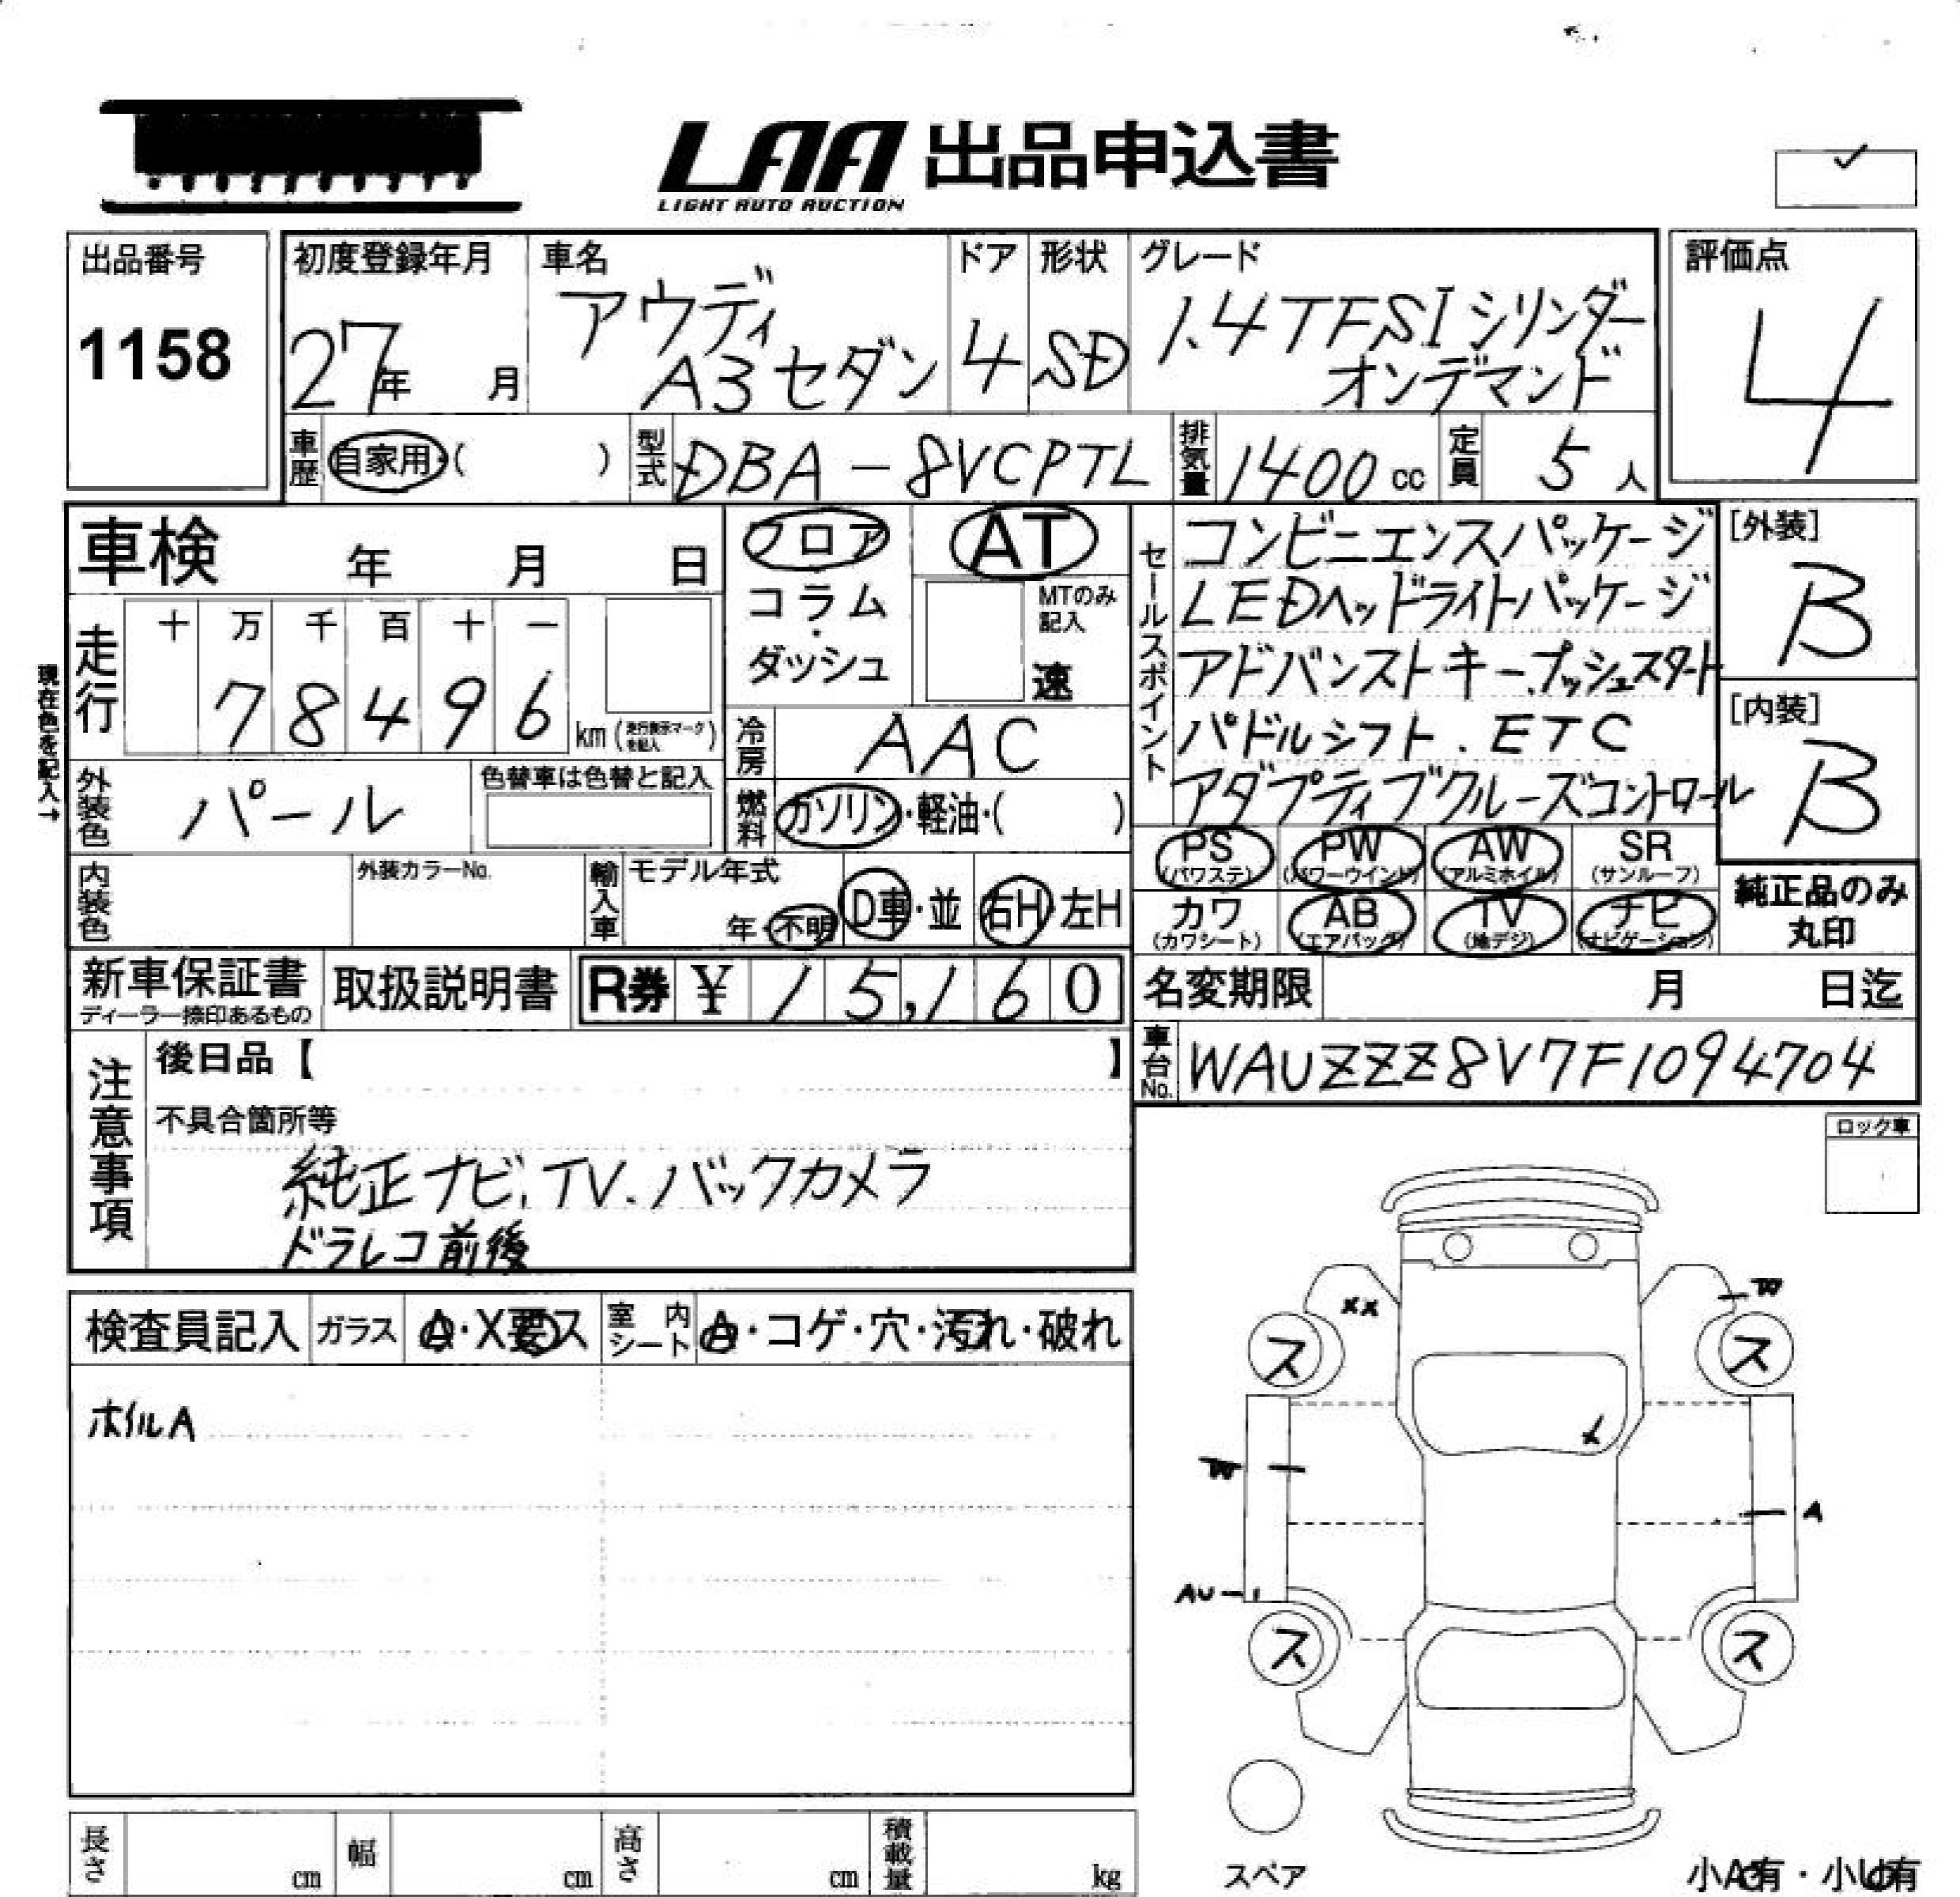 LAA 出品申込書
LIGHT AUTO AUCTION
出品番号
1158
初度登録年月
27年 月
車名
アウディ
A3セダン
ドア
4
形状
SD
グレード
1.4TFSIシリンダー
オンデマンド
評価点
4
車歴 自家用・( )
型式 DBA-8VCPTL
排気量 1400cc
定員 5人
車検 年 月 日
フロア
・
コラム
・
ダッシュ
AT
MTのみ
記入
速
走行
十 万 千 百 十 一
7 8 4 9 6 km(走行表示マークを記入)
現在色を記入→
冷房 AAC
外装色 パール
色替車は色替と記入
燃料 ガソリン・軽油・( )
内装色
外装カラーNo.
輸入車 モデル年式
年・不明
D車・並
右H・左H
セールスポイント
コンビニエンスパッケージ
LEDヘッドライトパッケージ
アドバンストキー.プッシュスタート
パドルシフト.ETC
アダプティブクルーズコントロール
[外装]
B
[内装]
B
PS PW AW SR
(パワステ) (パワーウインド) (アルミホイル) (サンルーフ)
カワ AB TV ナビ
(カワシート) (エアバッグ) (地デジ) (ナビゲーション)
純正品のみ
丸印
新車保証書
ディーラー捺印あるもの
取扱説明書
R券 ¥ 15,160
名変期限 月 日迄
車台No. WAUZZZ8V7F1094704
注意事項
後日品【 】
不具合箇所等
純正ナビ.TV.バックカメラ
ドラレコ前後
ロック車
検査員記入 ガラス A・X要ス
室内シート A・コゲ・穴・汚れ・破れ
ホイルA
XX
W
ス ス
X
W
A
AU
ス ス
スペア
長さ cm 幅 cm 高さ cm 積載量 kg
小A有・小U有